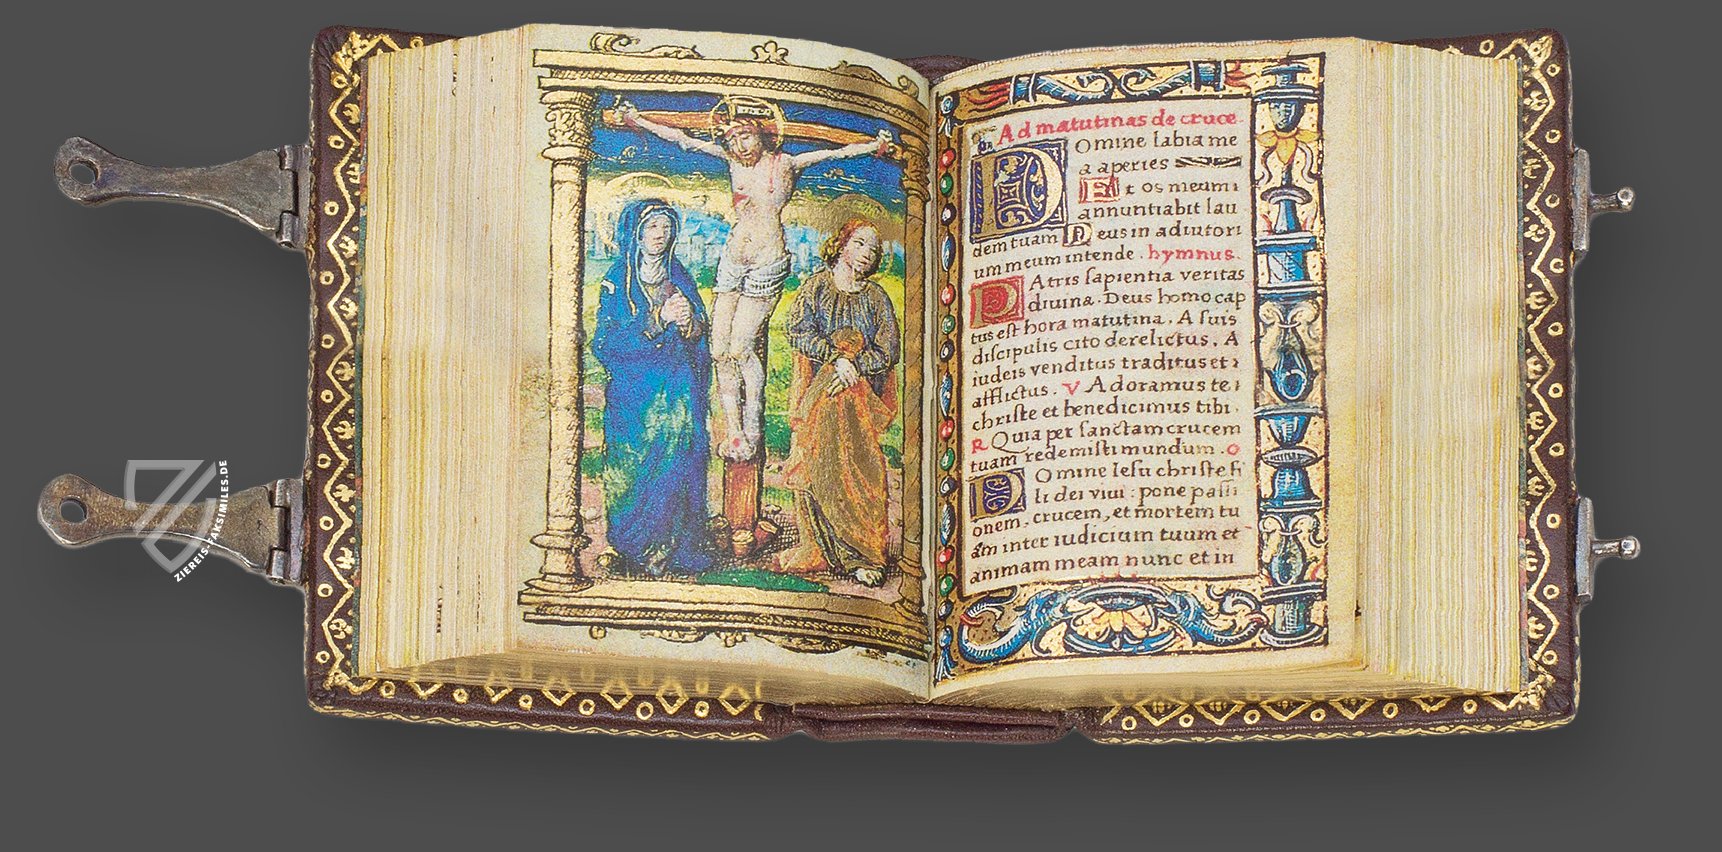 Ad matutinas de cruce.
Domine labia me
a aperies
Et os meum
annuntiabit lau
dem tuam Deus in adiutori
um meum intende . hymnus.
PAtris sapientia veritas
divina. Deus homo cap
tus est hora matutina. A suis
discipulis cito derelictus. A
iudeis venditus traditus et
afflictus. V Adoramus te
christe et benedicimus tibi.
R Quia per sanctam crucem
tuam redemisti mundum. o
DOmine Iesu christe fi
li dei vivi : pone passi
onem, crucem, et mortem tu
am inter iudicium tuum et
animam meam nunc et in
ZIEREIS-FAKSIMILES.DE